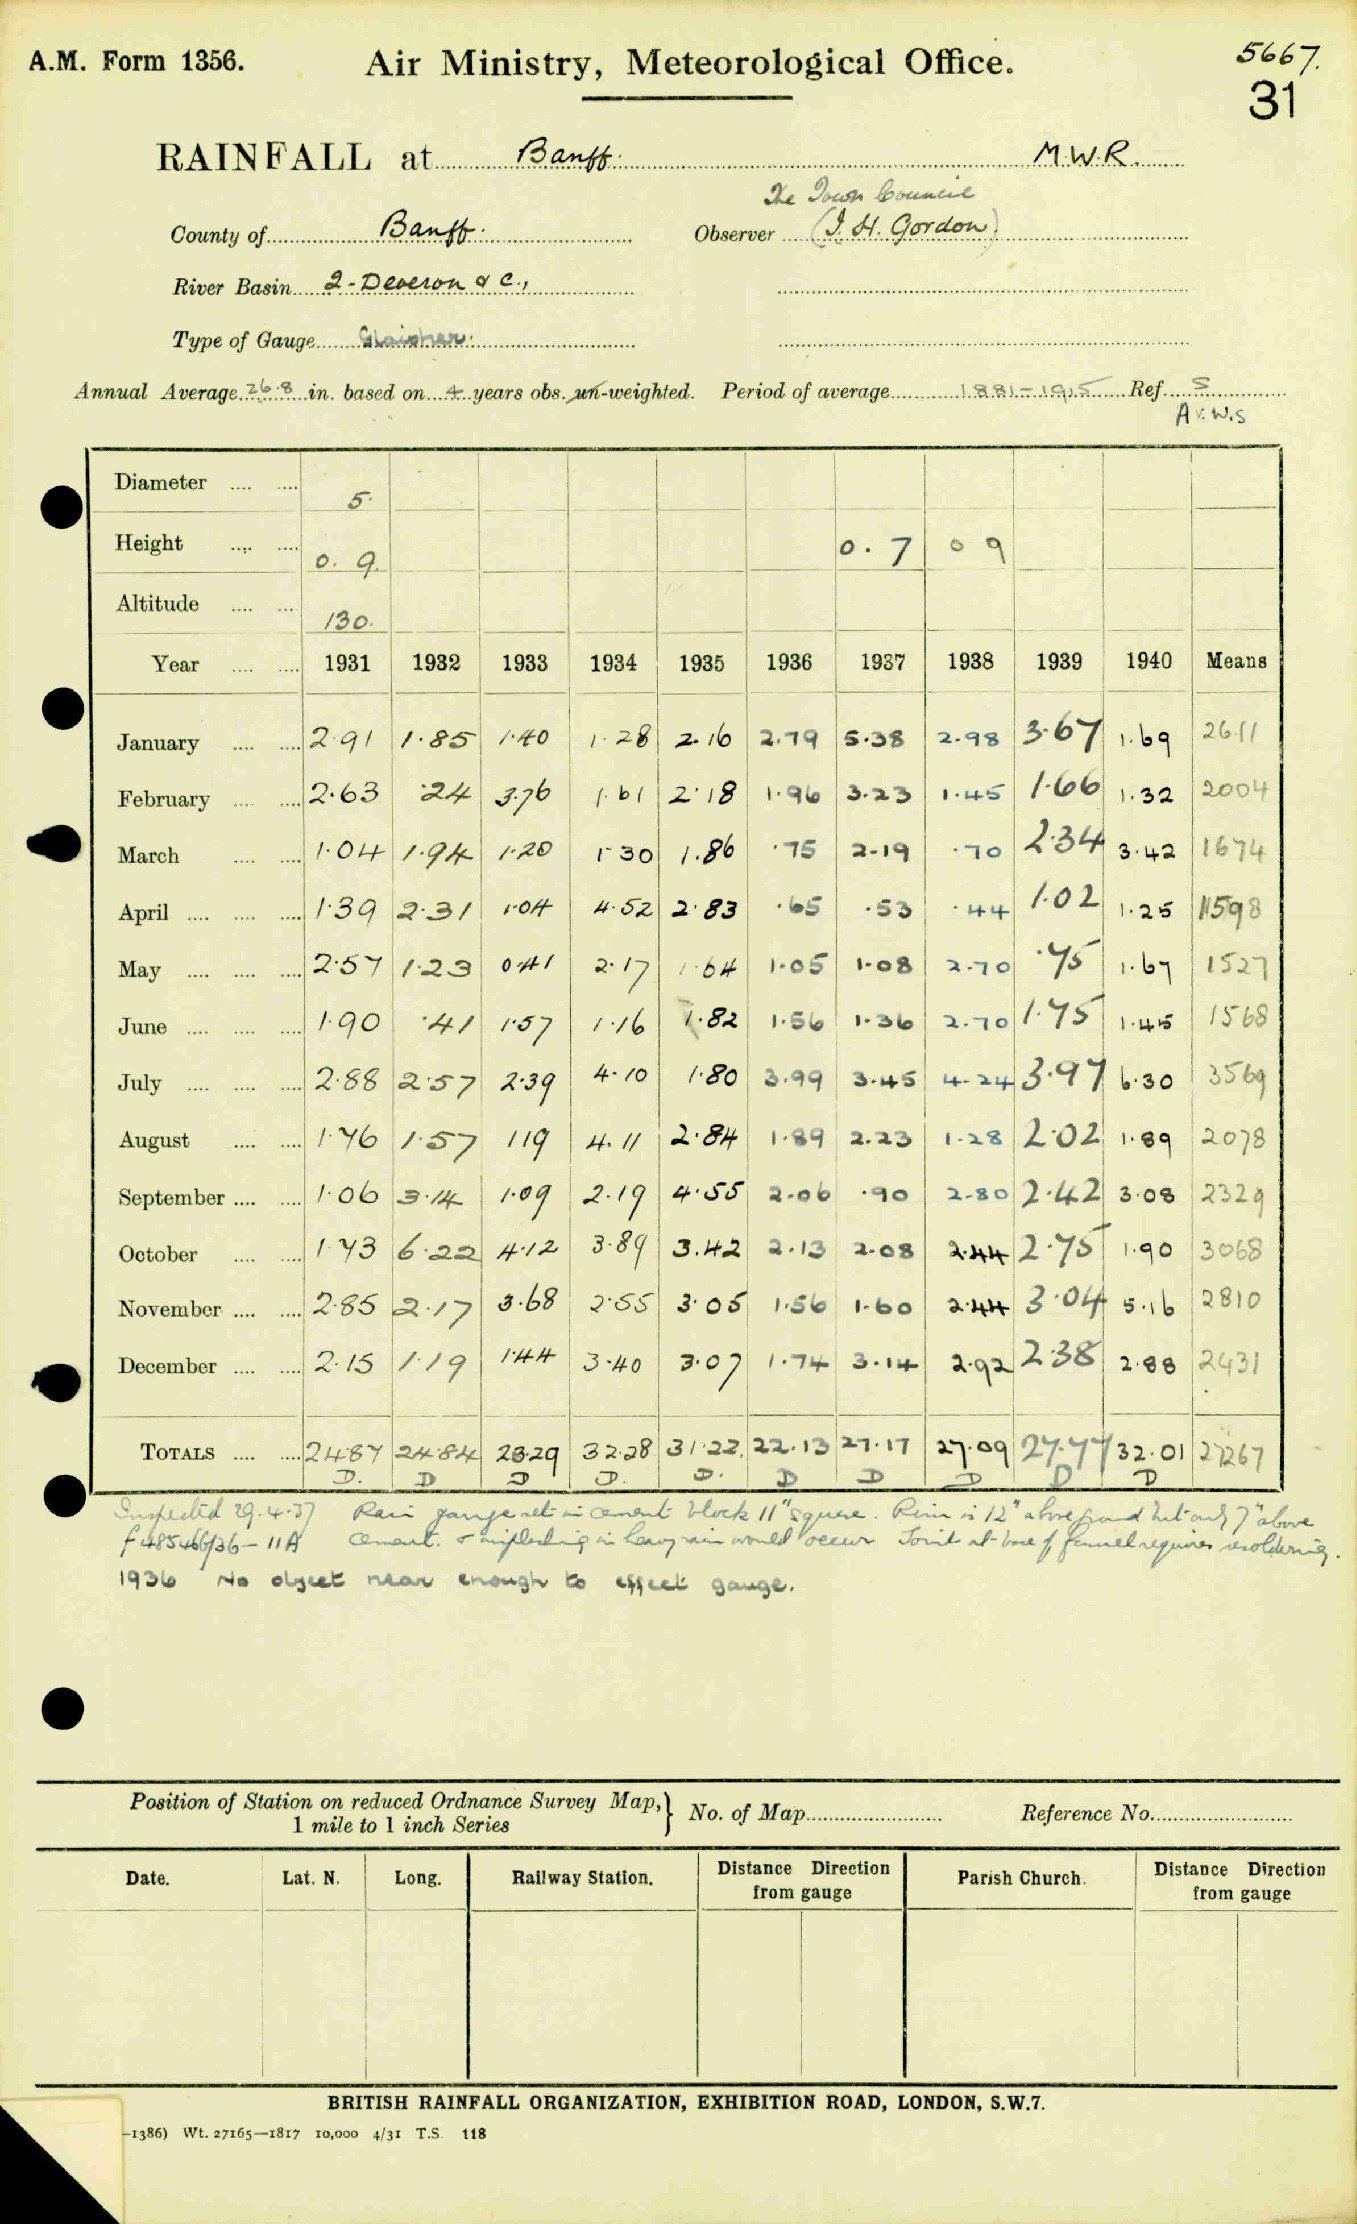 A.M. Form 1356.
Air Ministry, Meteorological Office.
5667.
31
RAINFALL at Banff. M.W.R.
The Town Council
County of Banff. Observer (J. H. Gordon)
River Basin 2-Deveron & C.,
Type of Gauge Glaisher.
Annual Average 26.8 in. based on 4 years obs. un-weighted. Period of average 1881-1915 Ref. S
Av.W.S
Diameter 5.
Height 0. 9. 0. 7 0 9
Altitude 130.
Year 1931 1932 1933 1934 1935 1936 1937 1938 1939 1940 Means
January 2.91 1.85 1.40 1.28 2.16 2.79 5.38 2.98 3.67 1.69 2611
February 2.63 .24 3.76 1.61 2.18 1.96 3.23 1.45 1.66 1.32 2004
March 1.04 1.94 1.20 1.30 1.86 .75 2.19 .70 2.34 3.42 1674
April 1.39 2.31 1.04 4.52 2.83 .65 .53 .44 1.02 1.25 1598
May 2.57 1.23 0.41 2.17 1.64 1.05 1.08 2.70 .75 1.67 1527
June 1.90 .41 1.57 1.16 1.82 1.56 1.36 2.70 1.75 1.45 1568
July 2.88 2.57 2.39 4.10 1.80 3.99 3.45 4.24 3.97 6.30 3569
August 1.76 1.57 1.19 4.11 2.84 1.89 2.23 1.28 2.02 1.89 2078
September 1.06 3.14 1.09 2.19 4.55 2.06 .90 2.80 2.42 3.08 2329
October 1.73 6.22 4.12 3.89 3.42 2.13 2.08 2.44 2.75 1.90 3068
November 2.85 2.17 3.68 2.55 3.05 1.56 1.60 2.44 3.04 5.16 2810
December 2.15 1.19 1.44 3.40 3.07 1.74 3.14 2.92 2.38 2.88 2431
TOTALS 24.87 24.84 23.29 32.28 31.22 22.13 27.17 27.09 27.77 32.01 27267
D. D D D. D. D D D D D
Inspected 29.4.37 Rain gauge set in cement block 11" square. Rim is 12" above ground but only 7" above
cement. & insplashing in heavy rain would occur Joint at base of funnel requires resoldering.
1936 No object near enough to effect gauge.
Position of Station on reduced Ordnance Survey Map, 1 mile to 1 inch Series } No. of Map Reference No.
Date. Lat. N. Long. Railway Station. Distance Direction from gauge Parish Church. Distance Direction from gauge
BRITISH RAINFALL ORGANIZATION, EXHIBITION ROAD, LONDON, S.W.7.
-1386) Wt. 27165—1817 10,000 4/31 T.S. 118